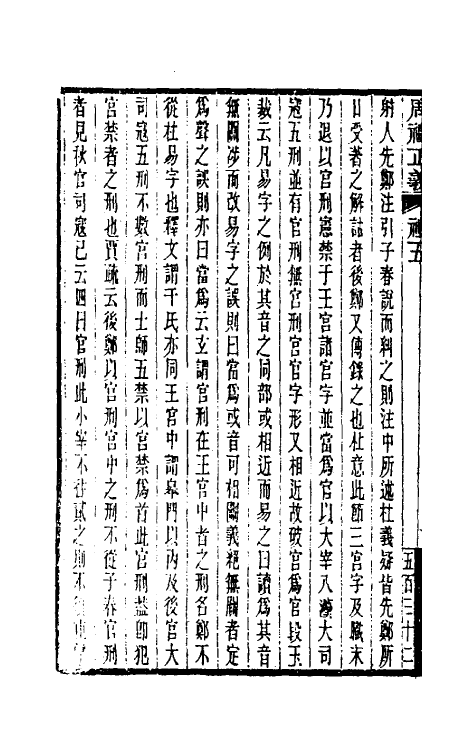 周禮正義 禮五 五百三十二
射人先鄭注引子春說而科之則注中所述杜義疑皆先鄭所
口受著之解詁者後鄭又傳錄之也杜意此節三宮字及職末
乃退以宮刑憲禁于王宮諸宮字並當爲官以大宰八灋大司
寇五刑並有官刑無宮刑宮官字形又相近故破宮爲官段玉
裁云凡易字之例於其音之同部或相近而易之曰讀爲其音
無關涉而改易字之誤則曰當爲或音可相關義絕無關者定
爲聲之誤則亦曰當爲云玄謂宮刑在王宮中者之刑名鄭不
從杜易字也釋文謂干氏亦同王宮中謂皋門以內及後宮大
司寇五刑不數宮刑而士師五禁以宮禁爲首此宮刑蓋卽犯
宮禁者之刑也賈疏云後鄭以宮刑宮中之刑不從子春官刑
者見秋官司寇已云四曰官刑此小宰不往貳之則不